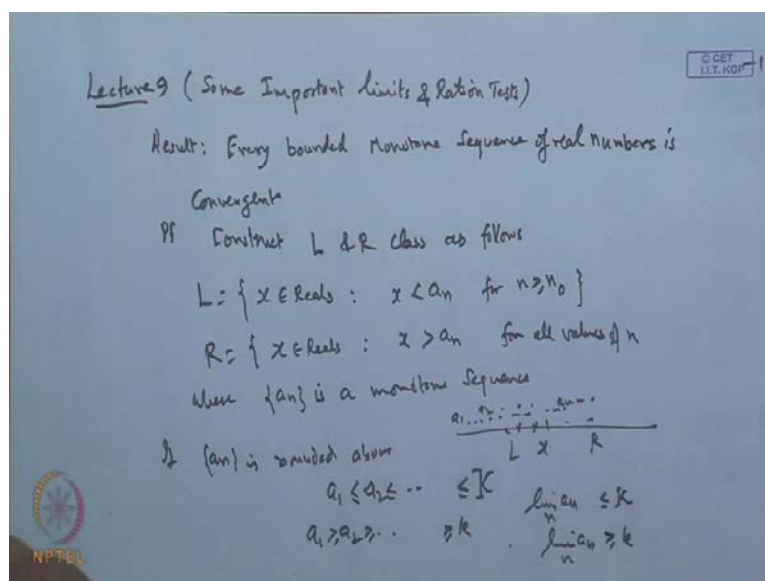 © CET
I.I.T. KGP
Lecture 9 ( Some Important limits & Ration Tests)
Result: Every bounded Monotone Sequence of real numbers is
Convergent
Pf Construct L & R class as follows
L = { x ∈ Reals : x < an for n ≥ n0 }
R = { x ∈ Reals : x > an for all values of n
where {an} is a monotone Sequence
a1 .. a2 .. an
L x R
If {an} is bounded above
a1 ≤ a2 ≤ .. ≤ K lim an ≤ K
n
a1 ≥ a2 ≥ .. ≥ k . lim an ≥ k
n
NPTEL